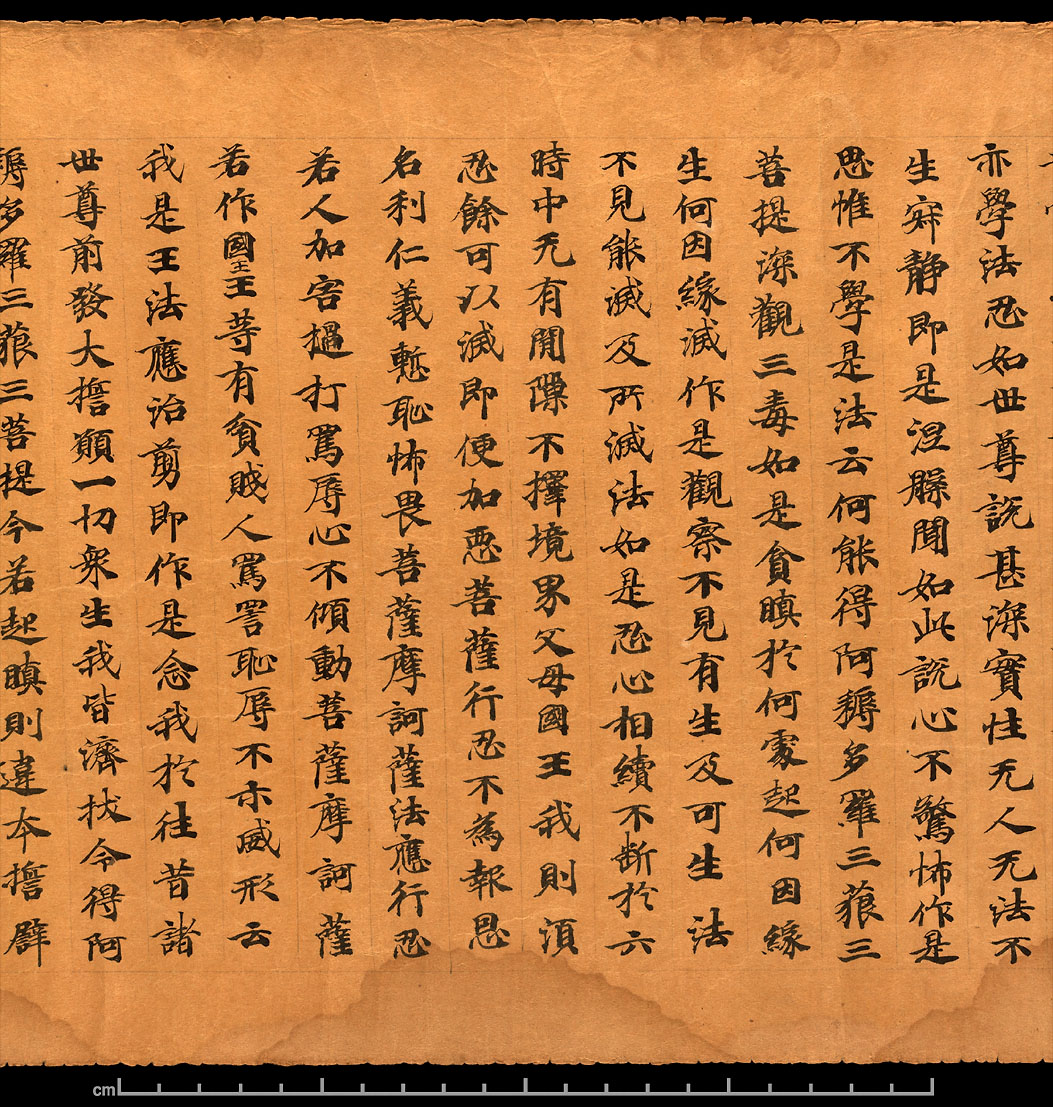 亦學法忍如世尊説甚深實性无人无法不
生㝛静即是涅槃聞如此説心不驚怖作是
思惟不學是法云何能得阿耨多羅三藐三
菩提深觀三毒如是貪瞋於何處起何因緣
生何因緣滅作是觀察不見有生及可生法
不見能滅及所滅法如是忍心相續不断於六
時中无有間隟不擇境界父母國王我則湏
忍餘可以滅即便加惡菩薩行忍不為報恩
名利仁義慙恥怖畏菩薩摩訶薩法應行忍
若人加害撾打罵辱心不傾動菩薩摩訶薩
若作國王王等有貧賤人罵詈恥辱不示威形云
我是王法應治剪即作是念我於往昔諸
世尊前發大擔願一切衆生我皆濟拔今得阿
耨多羅三藐三菩提今若起瞋則違本擔譬